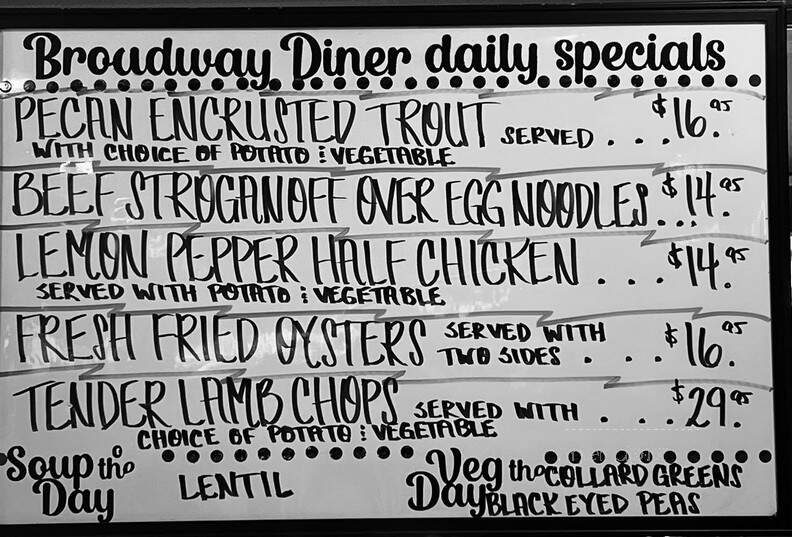 Broadway Diner daily specials
PECAN ENCRUSTED TROUT SERVED . . . $16.95
WITH CHOICE OF POTATO & VEGETABLE
BEEF STROGANOFF OVER EGG NOODLES . . . $14.95
LEMON PEPPER HALF CHICKEN . . . $14.95
SERVED WITH POTATO & VEGETABLE
FRESH FRIED OYSTERS SERVED WITH
TWO SIDES . . . $16.95
TENDER LAMB CHOPS SERVED WITH . . . $29.95
CHOICE OF POTATO & VEGETABLE
Soup o' the Day LENTIL
Veg o' the Day COLLARD GREENS
BLACK EYED PEAS